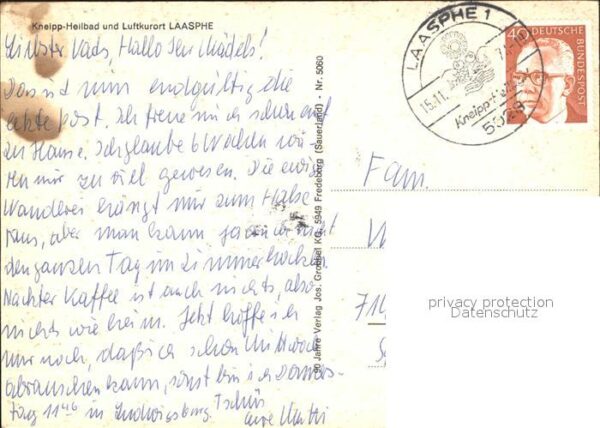 Kneipp-Heilbad und Luftkurort LAASPHE
Liebster Vads, Hallo Ihr Mädels!
Das ist nun endgültig die
letzte Post. Ich freue mich schon auf
zu Hause. Ich glaube 6 Wochen wä-
ren mir zu viel gewesen. Die ewige
Wanderei hängt mir zum Halse
raus, aber man kann ja auch nicht
den ganzen Tag im Zimmer hocken.
Nachter Kaffee ist auch nichts, also
nichts wie heim. Jetzt hoffe ich
nur noch, daß ich schon Mittwoch
abrauschen kann, sonst bin ich Donners-
tag 11 46 in Ludwigsburg. Tschüs
eure Mutti
90 Jahre Verlag Jos. Grobbel KG, 5949 Fredeburg (Sauerland) - Nr. 5060
LAASPHE 1
15.11.
Kneipp-
5928
40
DEUTSCHE
BUNDESPOST
Fam.
714
privacy protection
Datenschutz